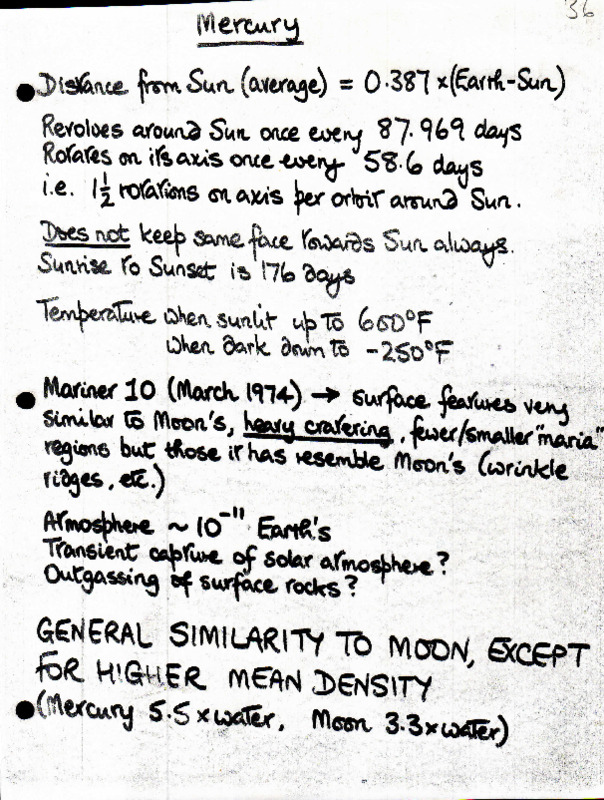 36
Mercury
● Distance from Sun (average) = 0.387 x (Earth-Sun)
Revolves around Sun once every 87.969 days
Rotates on its axis once every 58.6 days
i.e. 1½ rotations on axis per orbit around Sun.
Does not keep same face towards Sun always.
Sunrise to Sunset is 176 days
Temperature when sunlit up to 600°F
when dark down to -250°F
● Mariner 10 (March 1974) → surface features very
similar to Moon's, heavy cratering, fewer/smaller "maria"
regions but those it has resemble Moon's (wrinkle
ridges, etc.)
Atmosphere ~ 10⁻¹¹ Earth's
Transient capture of solar atmosphere?
Outgassing of surface rocks?
GENERAL SIMILARITY TO MOON, EXCEPT
FOR HIGHER MEAN DENSITY
● (Mercury 5.5 x water, Moon 3.3 x water)